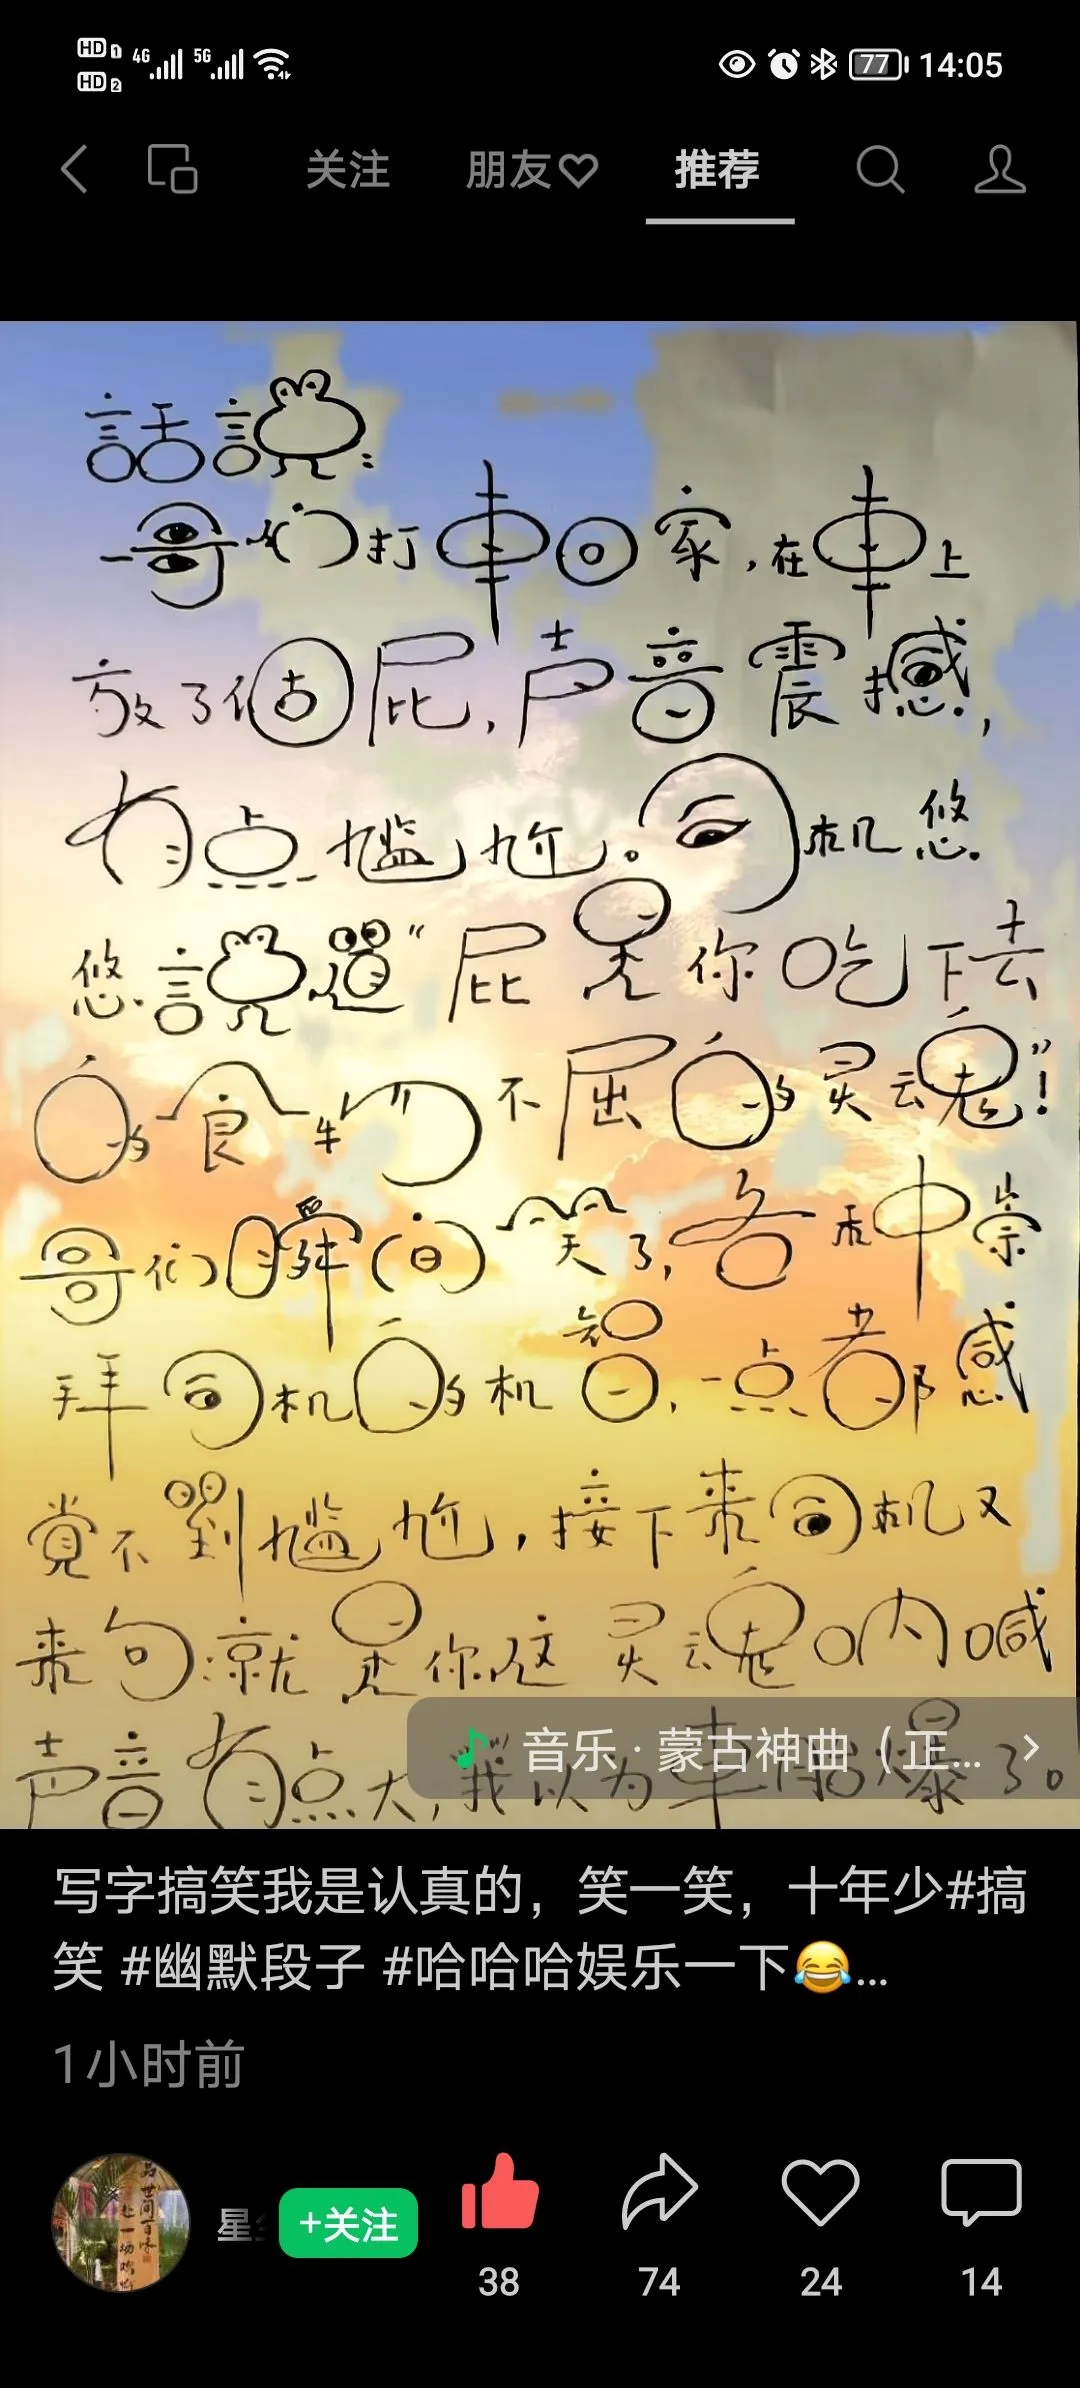 HD 1 4G 5G 77 14:05
HD 2
关注 朋友 推荐
話説:
一哥们打車回家,在車上
放了個屁,声音震撼,
有点尴尬。司机悠
悠説道“屁是你吃下去
的食物不屈的灵魂”!
哥们瞬间笑了,各种崇
拜司机的机智,一点都感
觉不到尴尬,接下来司机又
来句:就是你这灵魂呐喊
声音有点大,我以为車胎爆了。
音乐·蒙古神曲(正... >
写字搞笑我是认真的，笑一笑，十年少#搞
笑 #幽默段子 #哈哈哈娱乐一下😂...
1小时前
星 +关注
38 74 24 14